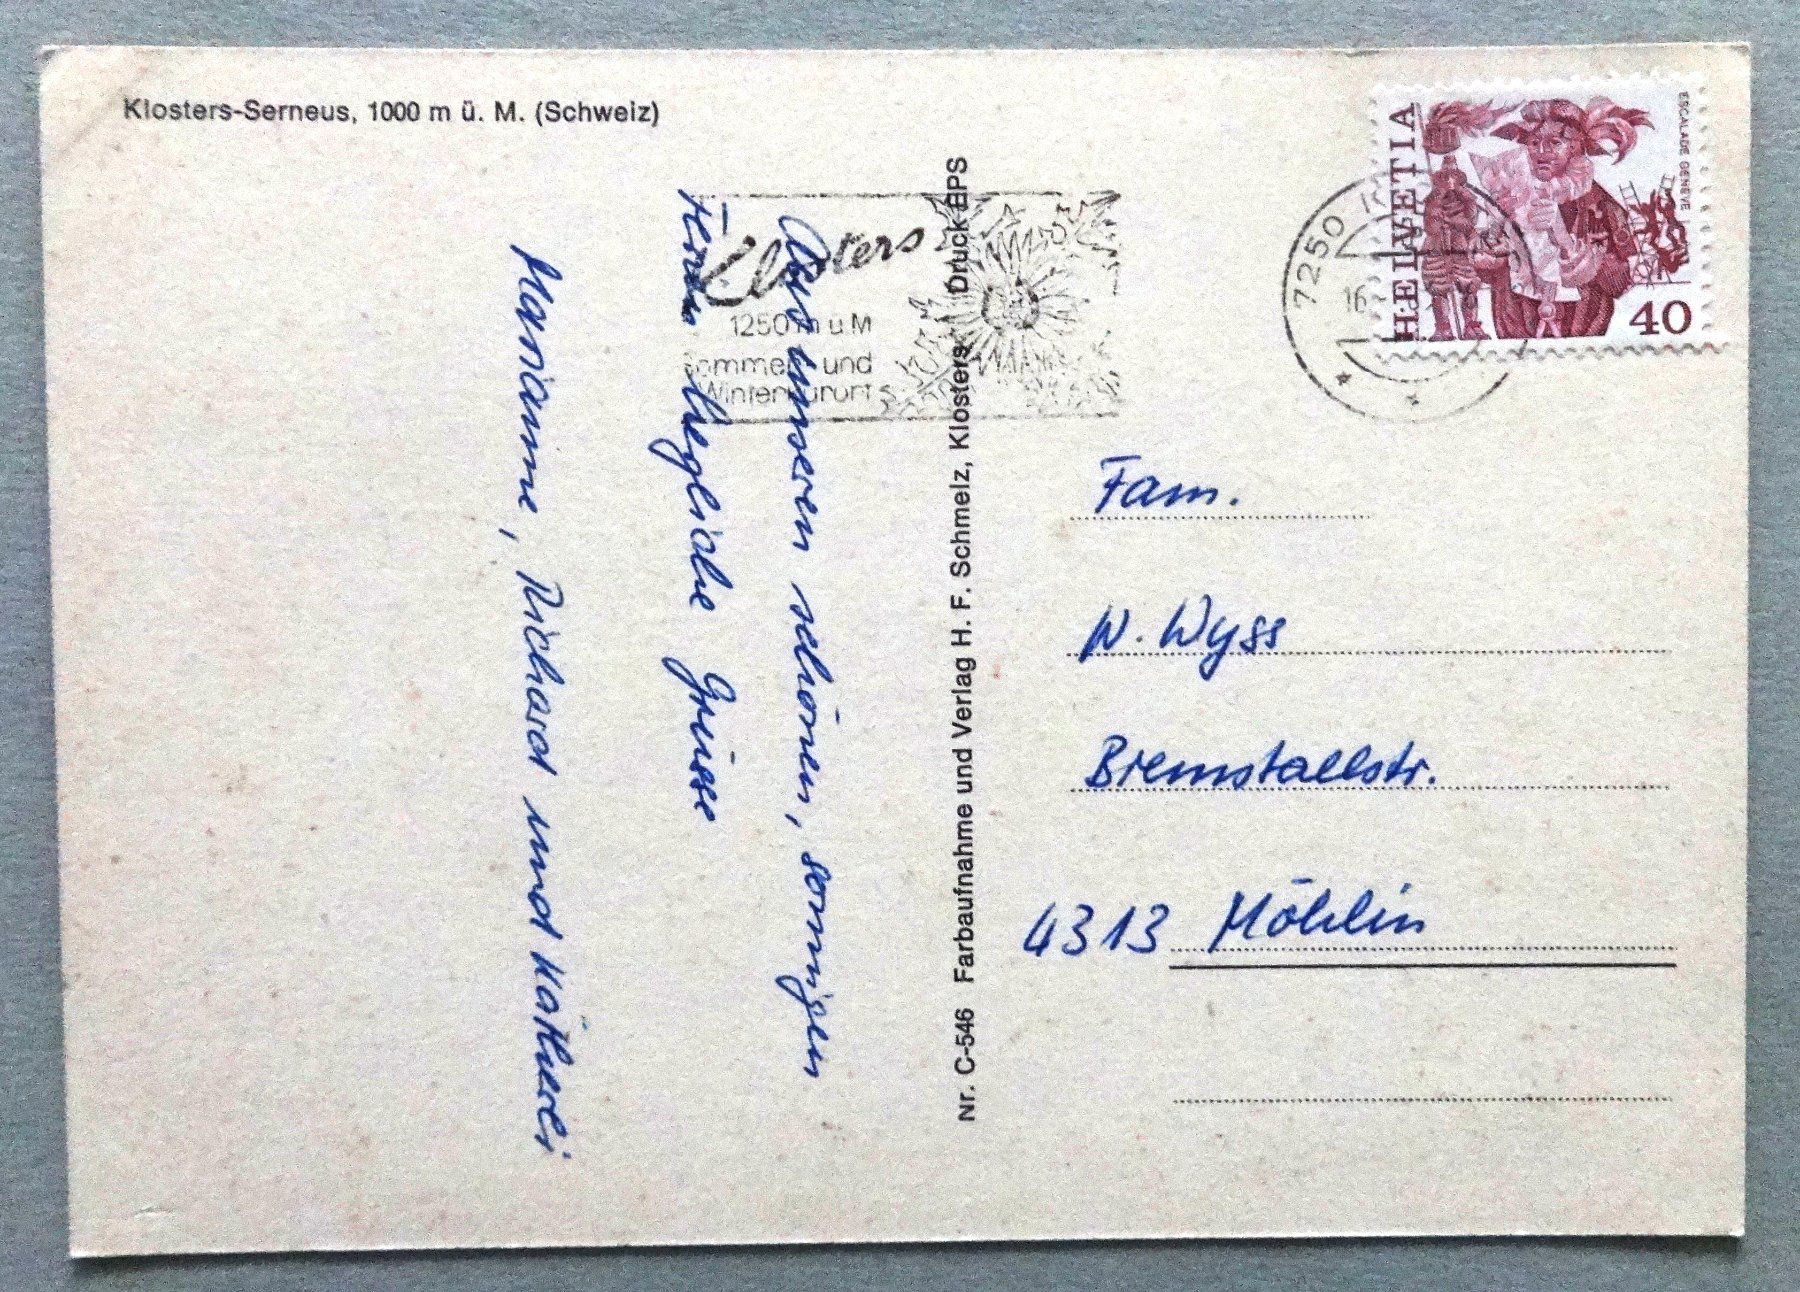 Klosters-Serneus, 1000 m ü. M. (Schweiz)
Aus unseren schönen, sonnigen
Ferien herzliche Grüsse
Marianne, Richard und Katherli
Klosters
1250 m ü M
Sommer- und
Winterkurort
Nr. C-546 Farbaufnahme und Verlag H. F. Schmelz, Klosters Druck BPS
HELVETIA
ESCALADE GENÈVE
40
7250
16
Fam.
W. Wyss
Bremstallstr.
4313 Möhlin